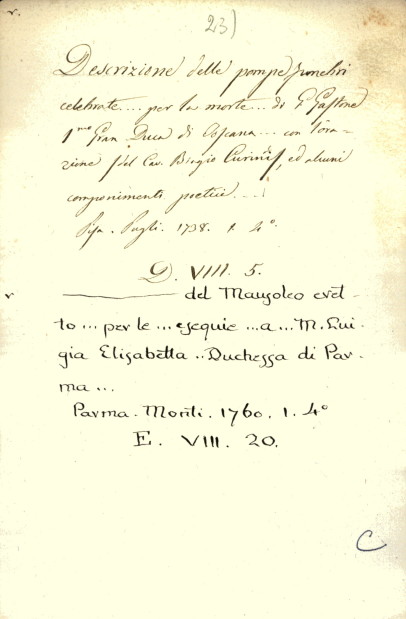 r. 23)
Descrizione delle pompe funebri
celebrate ... per la morte ... di G Gastone
1.mo Gran Duca di Toscana ... con l'ora-
zione [del Cav. Biagio Curini], ed alcuni
componimenti poetici ....
Pisa. Pugli. 1738. 1. 4°.
D. VIII. 5.
r ——— del Mausoleo eret-
to ... per le ... esequie ... a ... M. Lui-
gia Elisabetta .. Duchessa di Par-
ma ...
Parma. Monti. 1760. 1. 4°
E. VIII. 20.
C